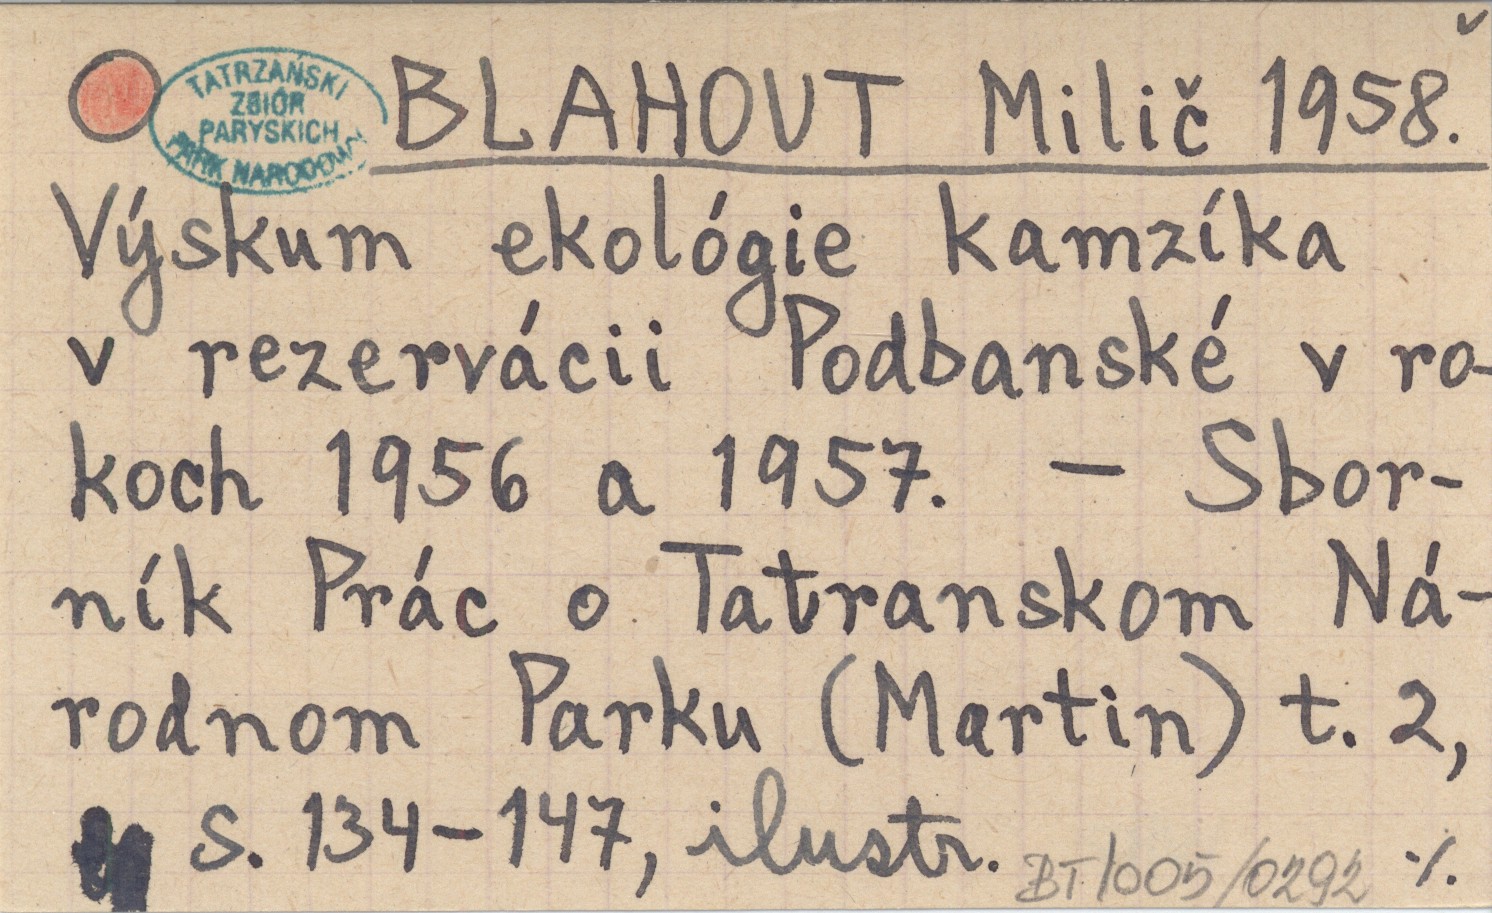 TATRZAŃSKI
ZBIÓR
PARYSKICH
PARK NARODOWY
BLAHOUT Milič 1958.
Výskum ekológie kamzíka
v rezervácii Podbanské v ro-
koch 1956 a 1957. – Sbor-
ník Prác o Tatranskom Ná-
rodnom Parku (Martin) t. 2,
s. 134–147, ilustr.
BT/005/0292 ·/.